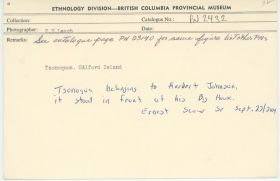 ETHNOLOGY DIVISION—BRITISH COLUMBIA PROVINCIAL MUSEUM
Collection: Catalogue No.: PN 2432
Photographer:
Remarks: See catalogue page PN 03140 for same figure
Tsonoqua, Gilford Island
Tsonoqua belonging to Herbert Johnson,
it stood in front of his Big House.
Ernest Scow Sr Sept. 22/2004